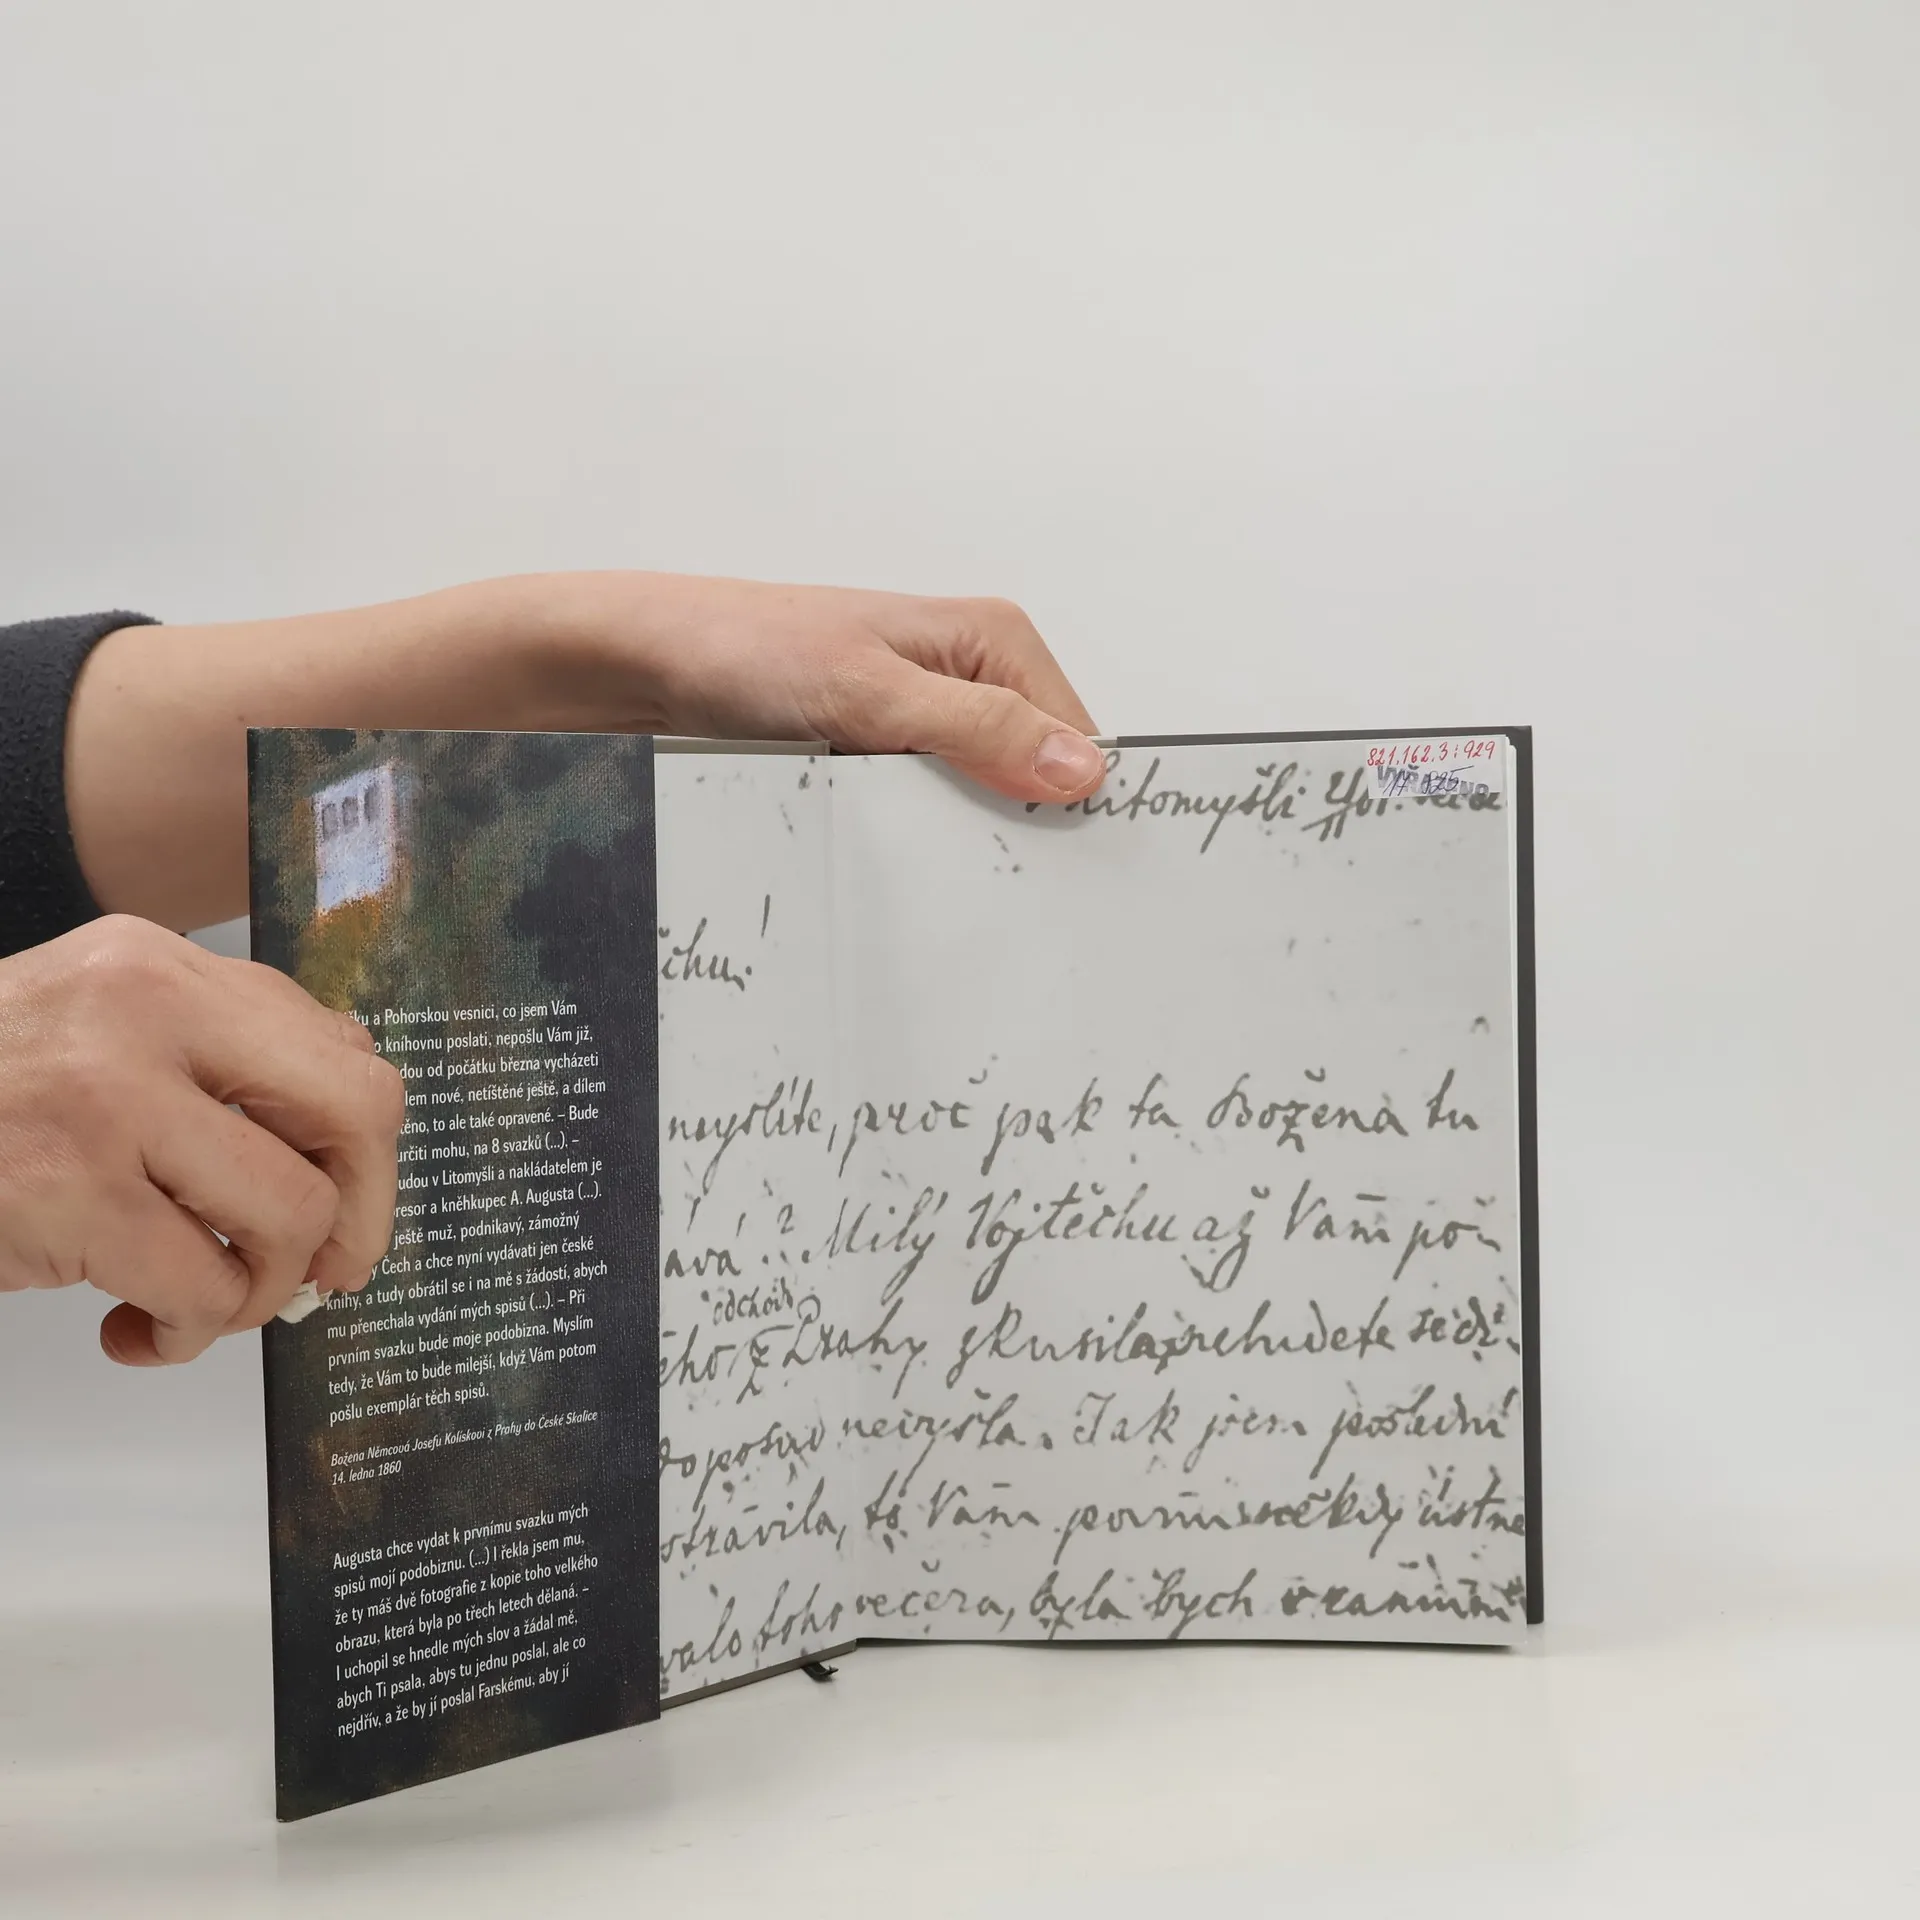 ku a Pohorskou vesnici, co jsem Vám
o knihovnu poslati, nepošlu Vám již,
dou od počátku března vycházeti
lem nové, netištěné ještě, a dílem
těno, to ale také opravené. – Bude
určiti mohu, na 8 svazků (...). –
udou v Litomyšli a nakládatelem je
resor a kněhkupec A. Augusta (...).
ještě muž, podnikavý, zámožný
y Čech a chce nyní vydávati jen české
knihy, a tudy obrátil se i na mě s žádostí, abych
mu přenechala vydání mých spisů (...). – Při
prvním svazku bude moje podobizna. Myslím
tedy, že Vám to bude milejší, když Vám potom
pošlu exemplár těch spisů.
Božena Němcová Josefu Kolískovi z Prahy do České Skalice
14. ledna 1860
Augusta chce vydat k prvnímu svazku mých
spisů mojí podobiznu. (...) I řekla jsem mu,
že ty máš dvě fotografie z kopie toho velkého
obrazu, která byla po třech letech dělaná. –
I uchopil se hnedle mých slov a žádal mě,
abych Ti psala, abys tu jednu poslal, ale co
nejdřív, a že by jí poslal Farskému, aby jí
821.162.3:929
Litomyšli
čhu!
myslíte, proč pak ta Božena tu
ává? Milý Vojtěchu až Vám po-
odchodu
ého z Prahy zkusila, nebudete se di-
doposud nevyšla. Jak jsem poslední
strávila, to Vám povím někdy ústně
valo toho večera, byla bych v ranním